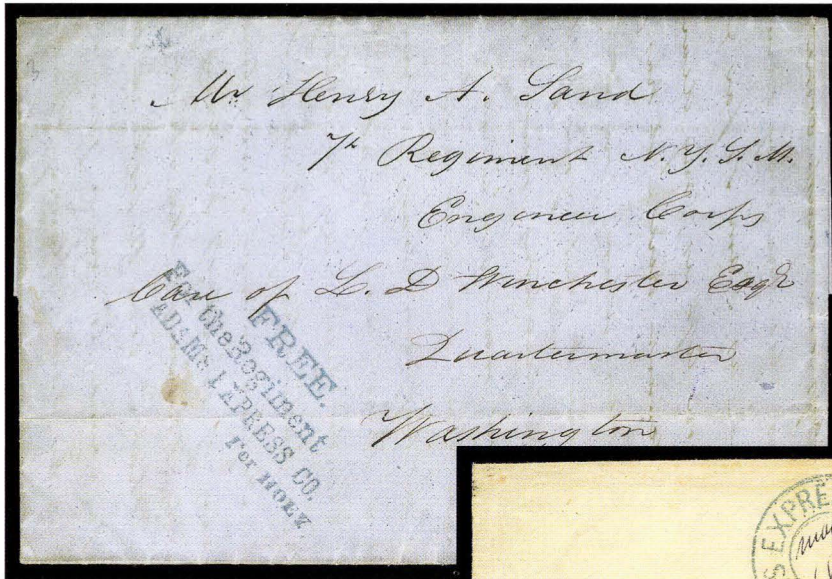 Mr Henry A. Sand
7th Regiment N.Y.S.M.
Engineer Corps
Care of L. D Winchester Esqr
Quartermaster
Washington
FREE.
For the Regiment
ADAMS EXPRESS CO.
Per
S EXPRE